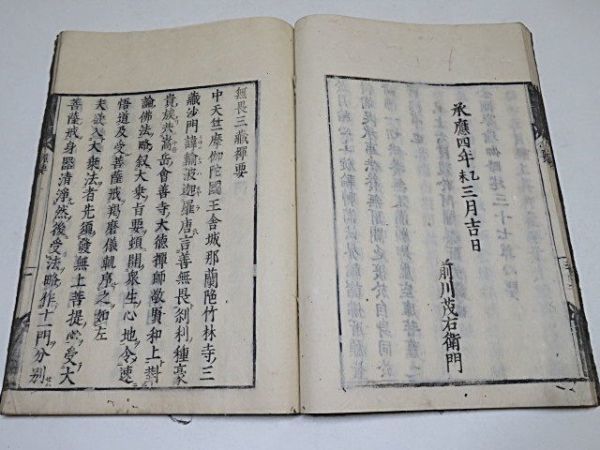 承應四年乙未三月吉日
前川茂右衛門
無畏三藏禪要
中天竺摩伽陀國王舍城那蘭陁竹林寺三
藏沙門諱輸波迦羅唐言善無畏刹利種豪
貴族共嵩岳會善寺大德禪師敬賢和上對
論佛法略叙大乘旨要頓開衆生心地令速
悟道及受菩薩戒羯磨儀軌序之如左
夫欲入大乘法者先須發無上菩提心受大
菩薩戒身器清淨然後受法略作十一門分別